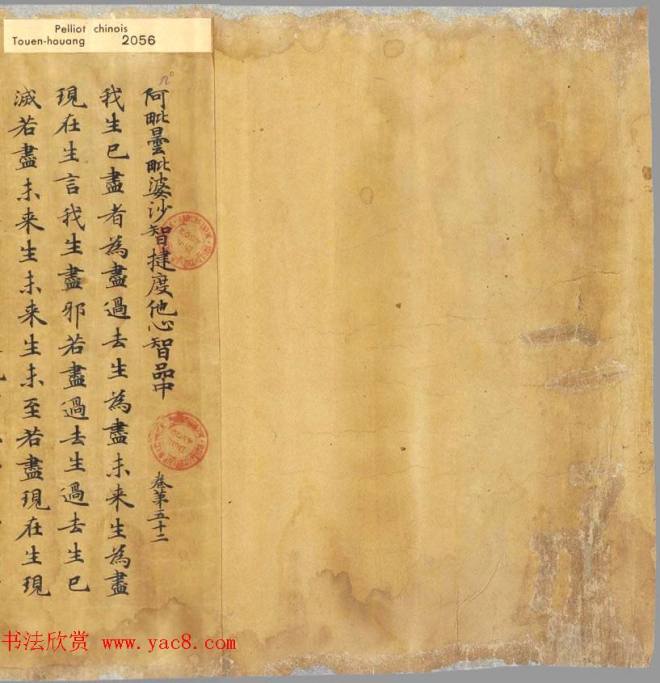 Pelliot chinois
Touen-houang 2056
阿毗曇毗婆沙智揵度他心智品中 卷第五十二
我生已盡者為盡過去生為盡未来生為盡
現在生言我生盡邪若盡過去生過去生已
滅若盡未来生未来生未至若盡現在生現
书法欣赏 www.yac8.com